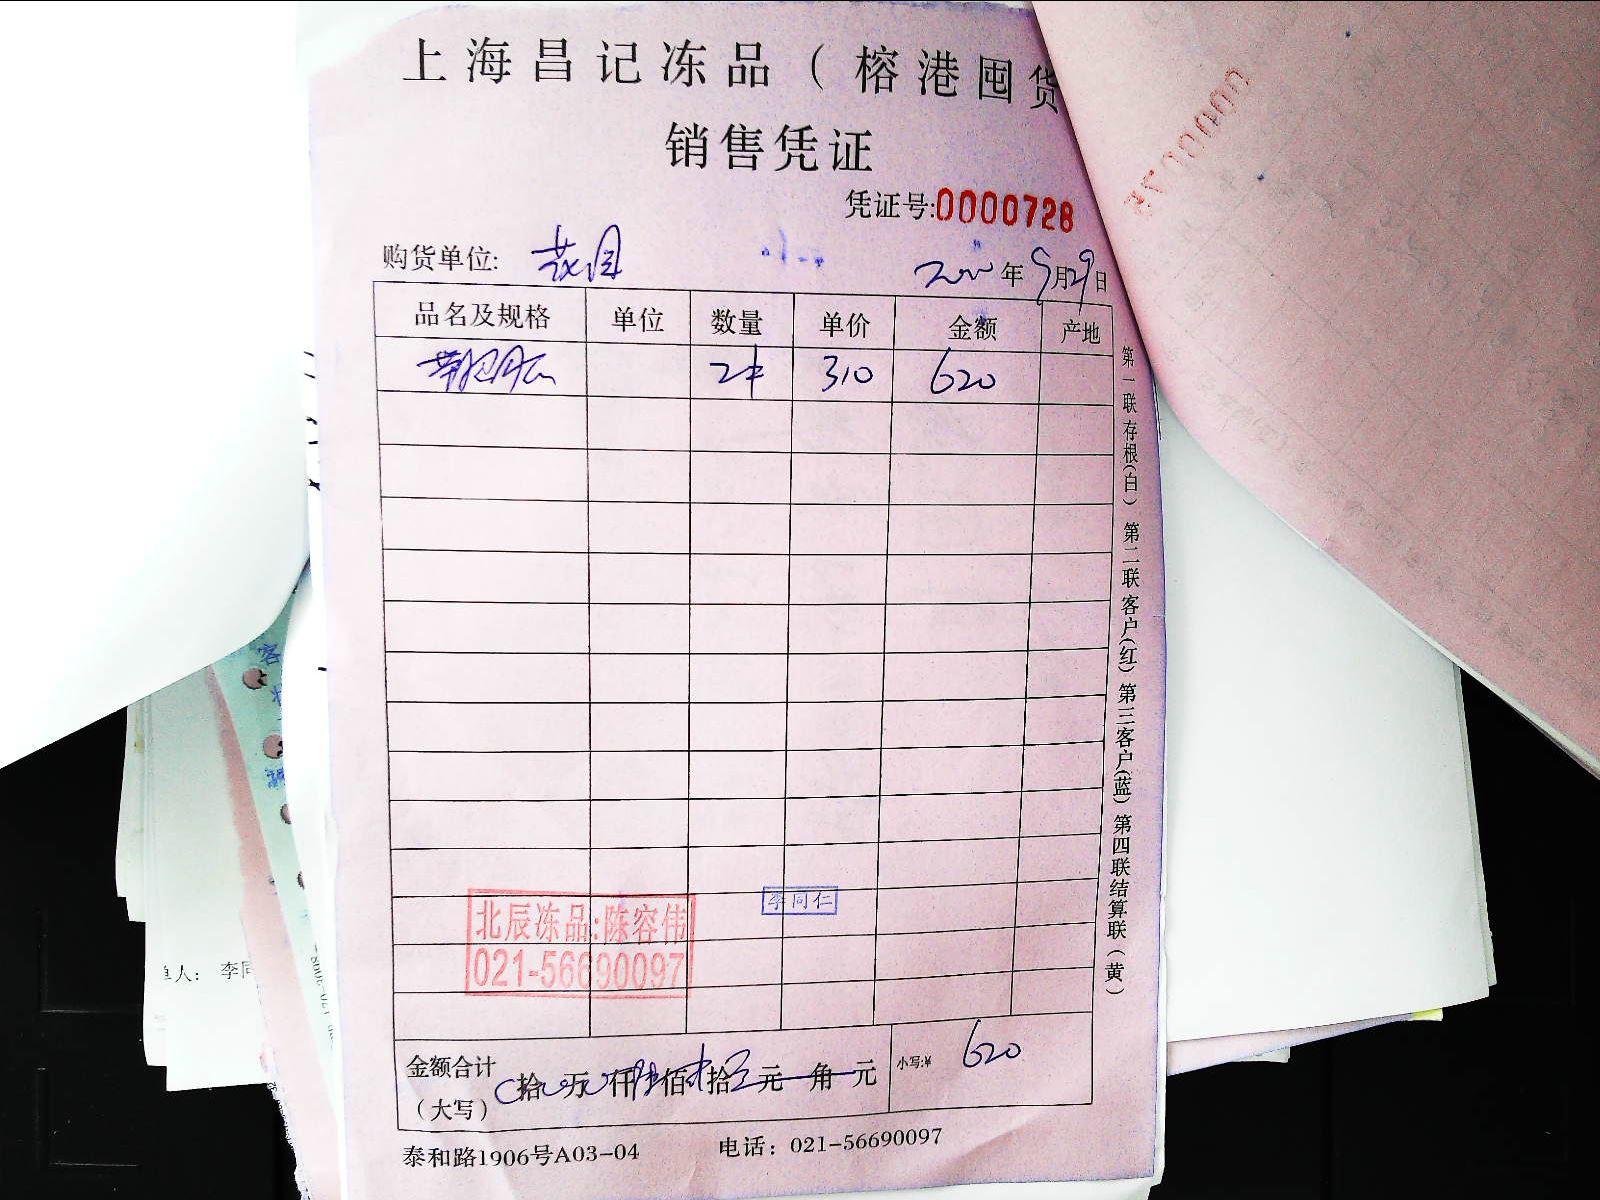 上海昌记冻品（榕港囤货
销售凭证
凭证号:0000728
购货单位: 花园
年9月29日
品名及规格 单位 数量 单价 金额 产地
2件 310 620
第一联存根(白) 第二联客户(红) 第三客户(蓝) 第四联结算联(黄)
李同仁
北辰冻品:陈容伟
021-56690097
金额合计
（大写）
拾 万 仟陆佰贰拾 元 角 元
小写:¥ 620
泰和路1906号A03-04 电话：021-56690097
单人： 李同
客